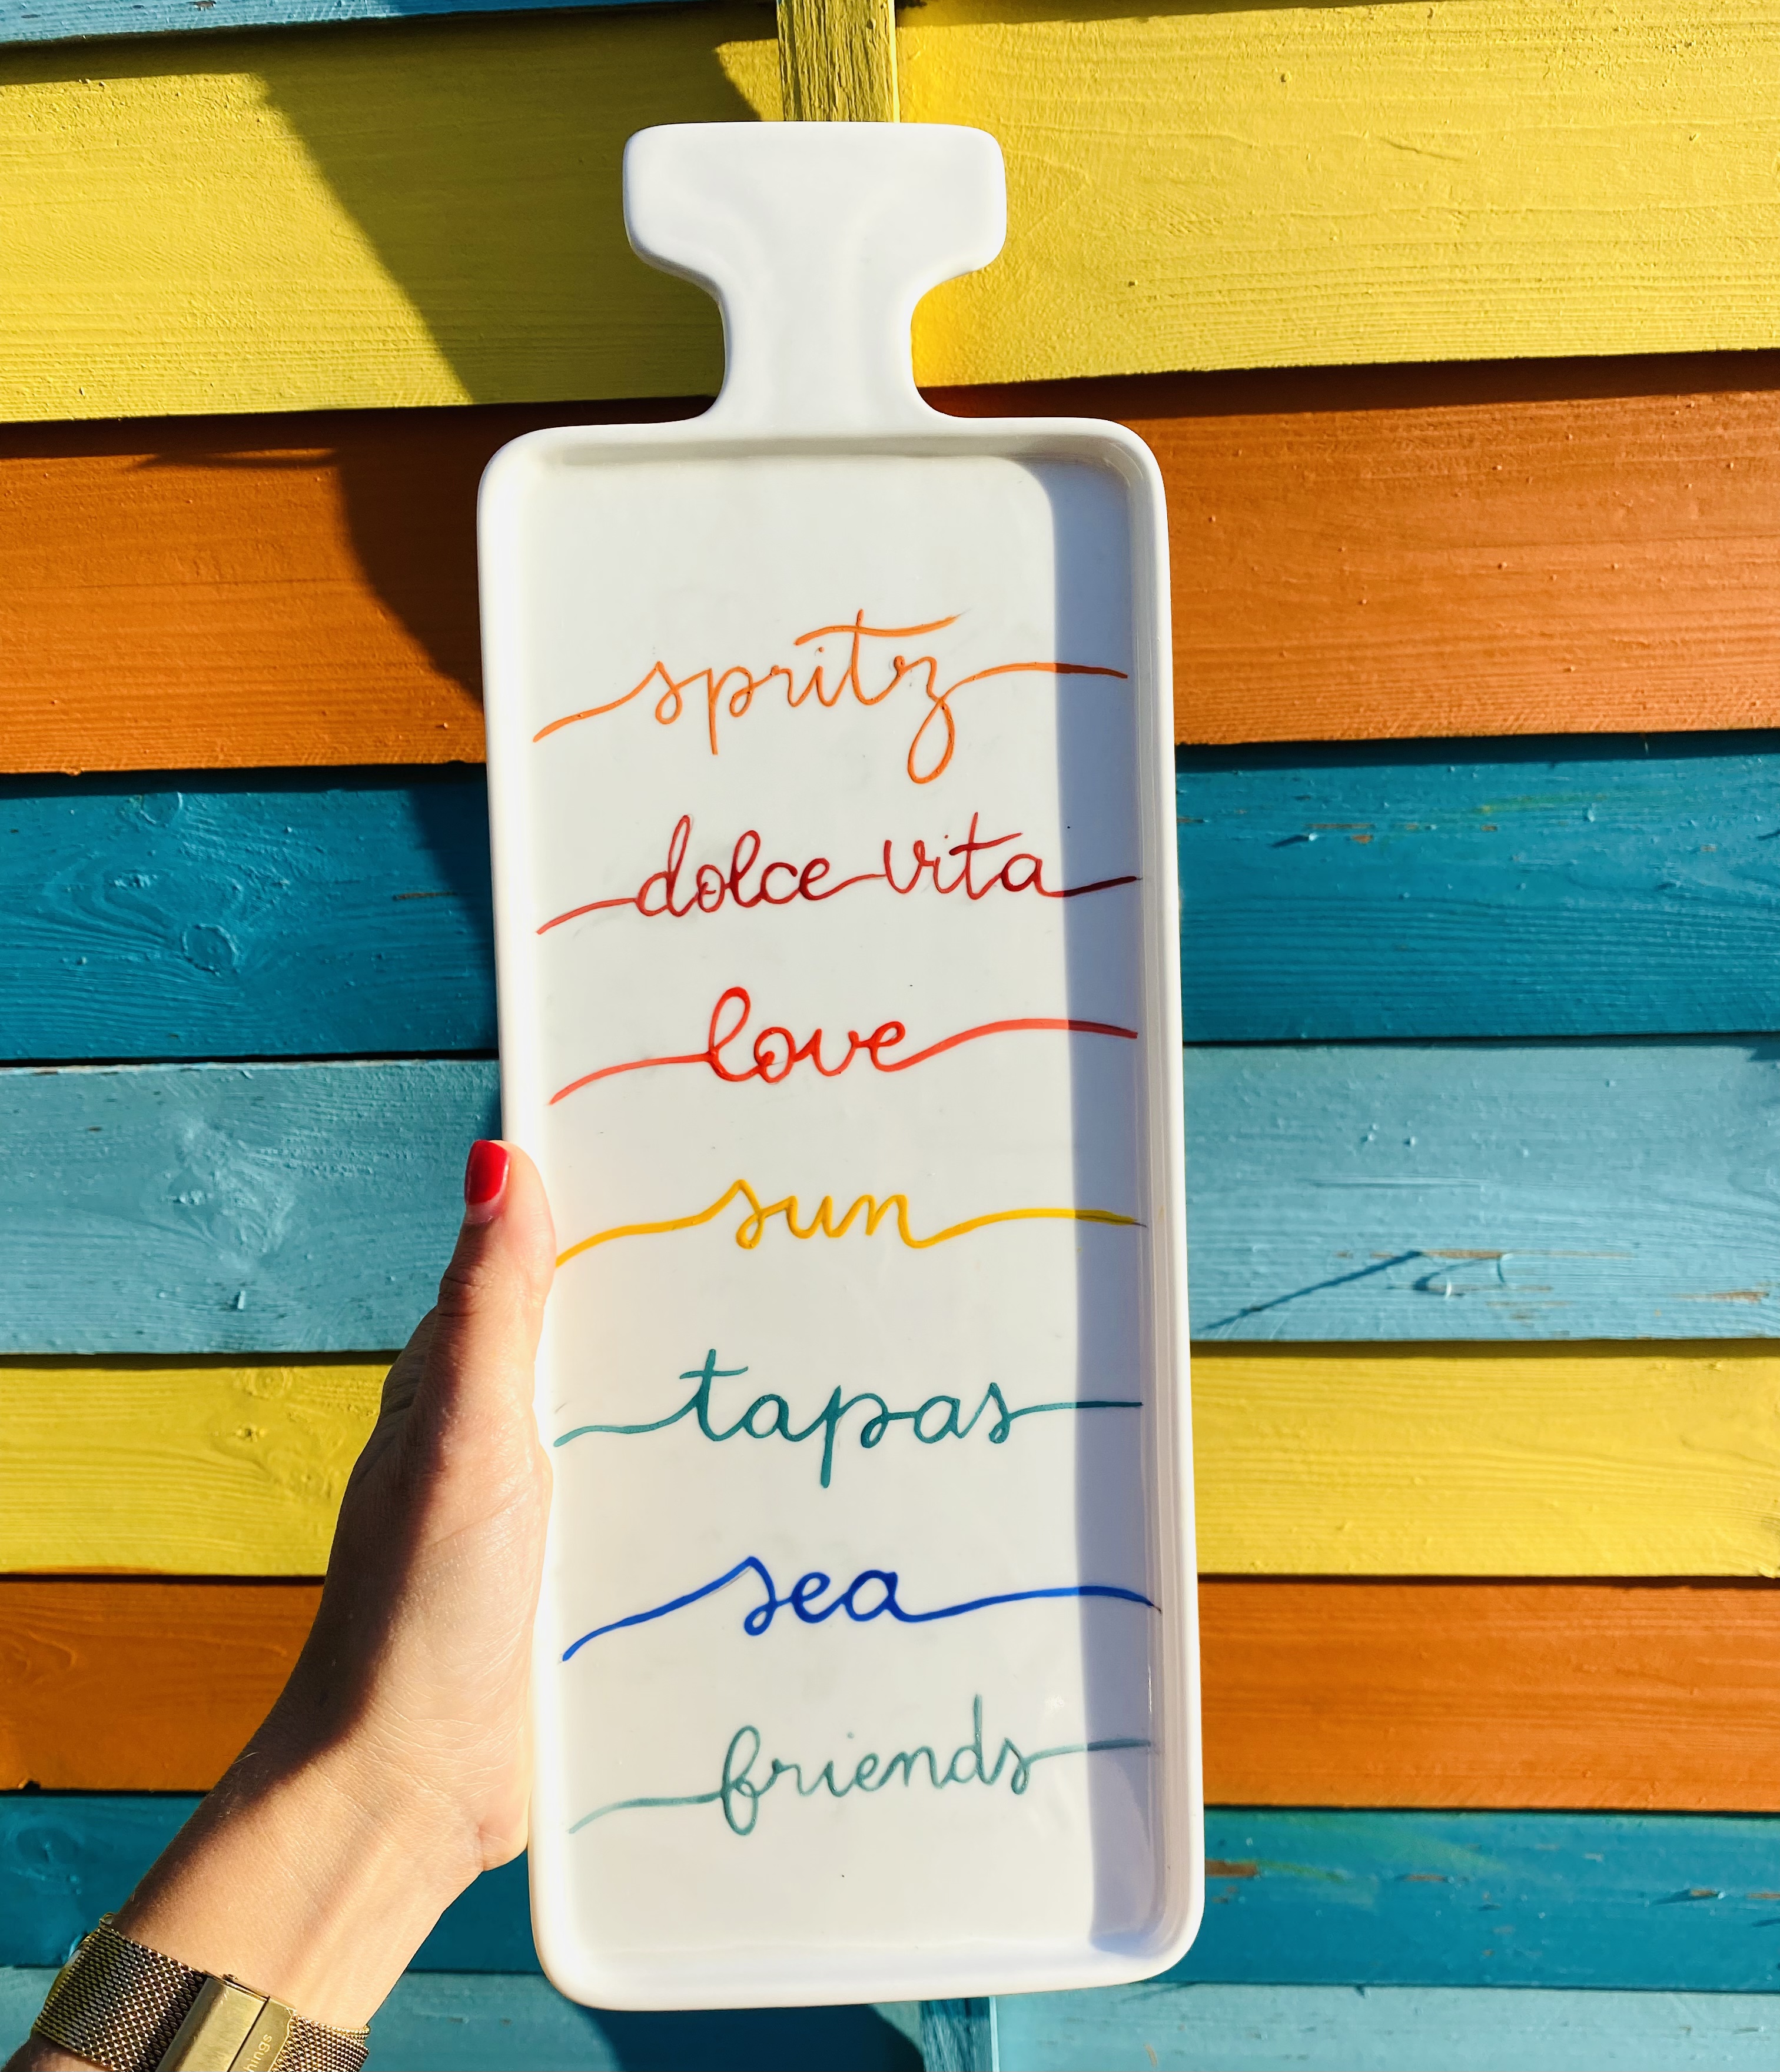 spritz
dolce vita
love
sun
tapas
sea
friends